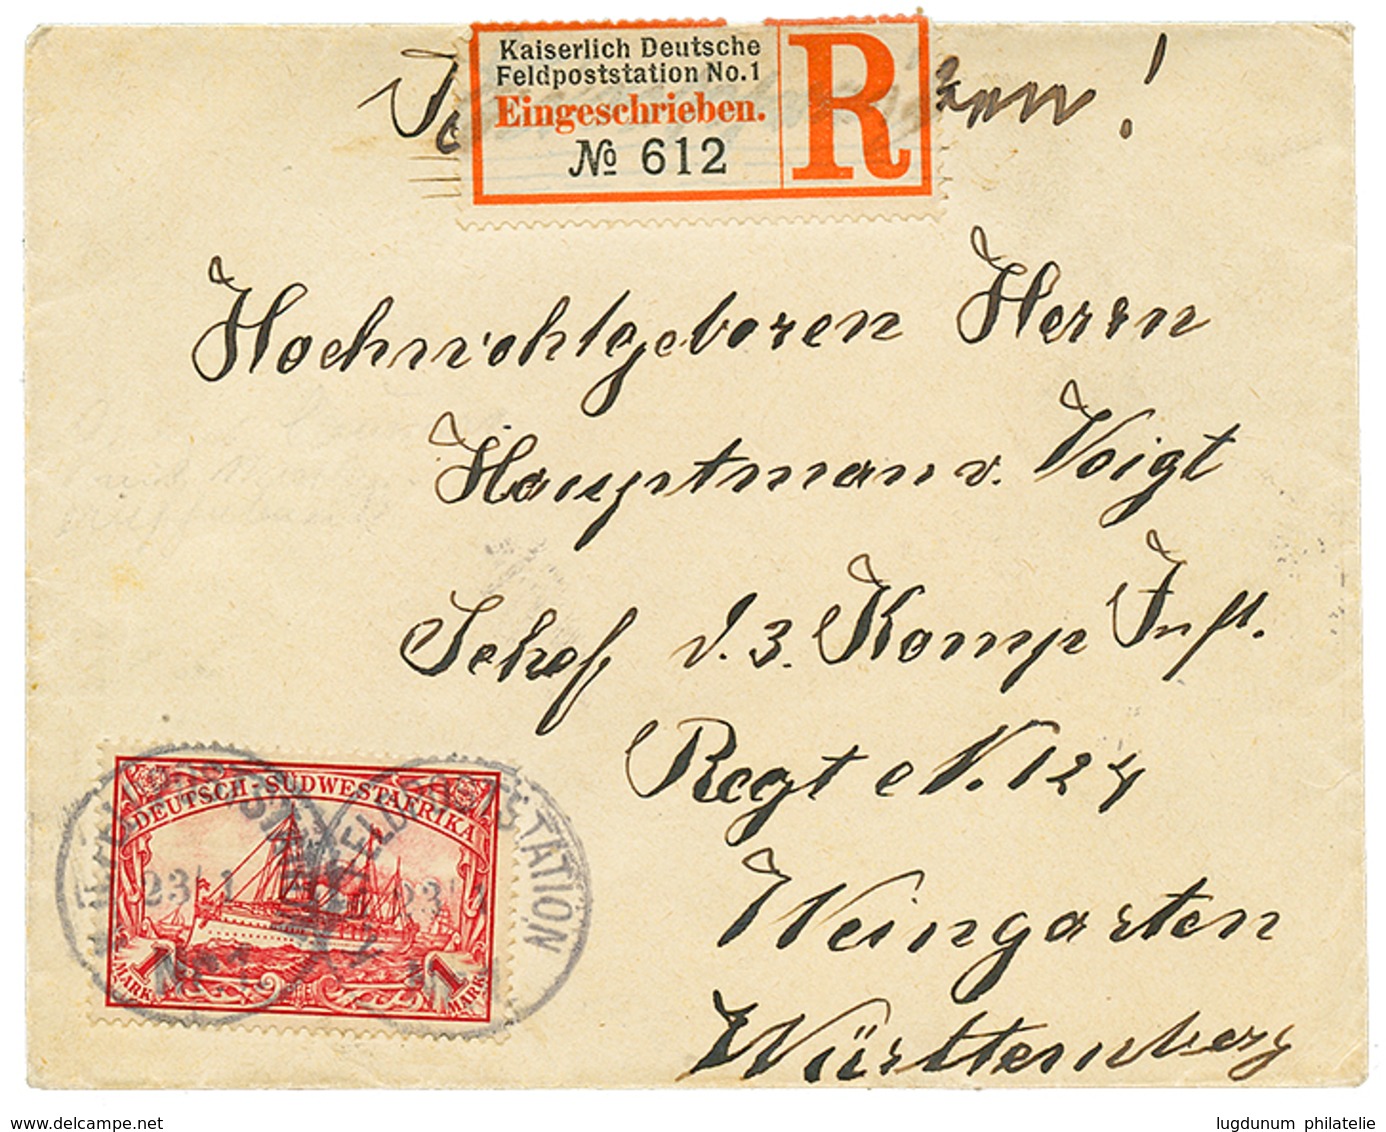 Kaiserlich Deutsche
Feldpoststation No. 1
Eingeschrieben.
№ 612
R
Hochwohlgeboren Herrn
Hauptmann v. Voigt
Schef d. 3. Komp Inft.
Regt N. 124
Weingarten
Württemberg
DEUTSCH-SÜDWESTAFRIKA
1 MARK
1 MARK
FELDPOSTSTATION
23/1
Nr. 1
FELDPOSTSTATION
23/1
www.delcampe.net
lugdunum philatelie